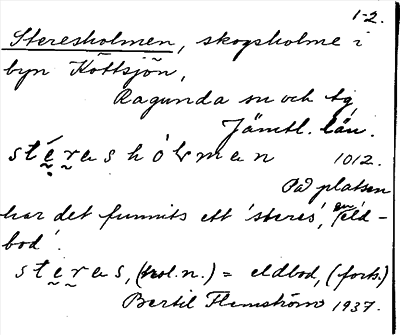 1-2.
Steresholmen, skogsholme i
byn Köttsjön,
Ragunda sn och tg,
Jämtl. län.
stérashólman 1012.
På platsen
har det funnits ett 'steres', en 'eld-
bod'.
steras, (sol.n.) = eldbod, (forts.)
Bertil Flemström 1937.